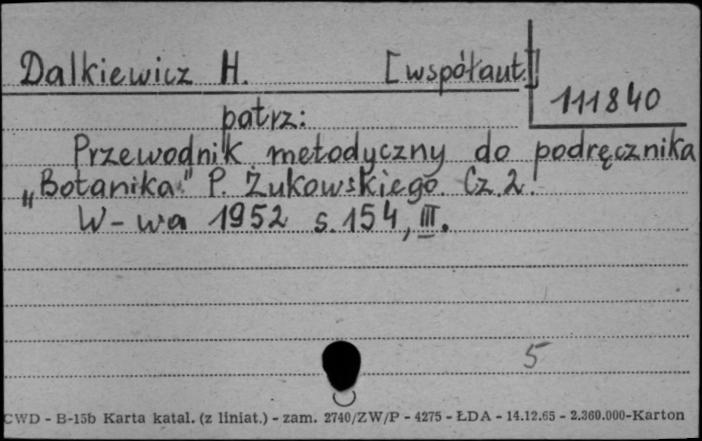 Dalkiewicz H. [współaut.]
111840
patrz:
Przewodnik metodyczny do podręcznika
„Botanika" P. Żukowskiego Cz. 2.
W-wa 1952 s. 154, III.
5
CWD - B-15b Karta katal. (z liniat.) - zam. 2740/ZW/P - 4275 - ŁDA - 14.12.65 - 2.360.000-Karton